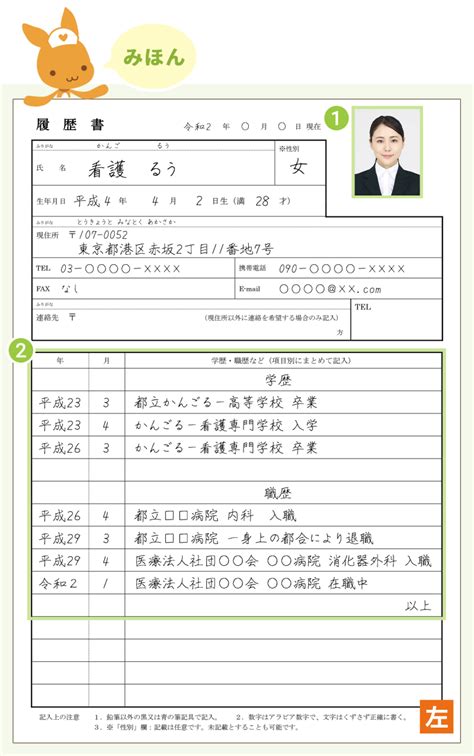 みほん
履歴書 令和2 年 〇 月 〇 日 現在
1
ふりがな かんご るう
※性別
氏 名 看護 るう
女
生年月日 平成4 年 4 月 2 日生(満 28 才)
ふりがな とうきょうと みなとく あかさか
現住所 〒107-0052
東京都港区赤坂2丁目11番地7号
TEL 03-〇〇〇〇-×××× 携帯電話 090-〇〇〇〇-××××
FAX なし E-mail 〇〇〇〇@××.com
ふりがな
TEL
連絡先 〒 (現住所以外に連絡を希望する場合のみ記入)
方
2
年 月 学歴・職歴など(項目別にまとめて記入)
学歴
平成23 3 都立かんごるー高等学校 卒業
平成23 4 かんごるー看護専門学校 入学
平成26 3 かんごるー看護専門学校 卒業
職歴
平成26 4 都立□□病院 内科 入職
平成29 3 都立□□病院 一身上の都合により退職
平成29 4 医療法人社団〇〇会 〇〇病院 消化器外科 入職
令和2 1 医療法人社団〇〇会 〇〇病院 在職中
以上
左
記入上の注意 1.鉛筆以外の黒又は青の筆記具で記入。 2.数字はアラビア数字で、文字はくずさず正確に書く。
3.※「性別」欄:記載は任意です。未記載とすることも可能です。